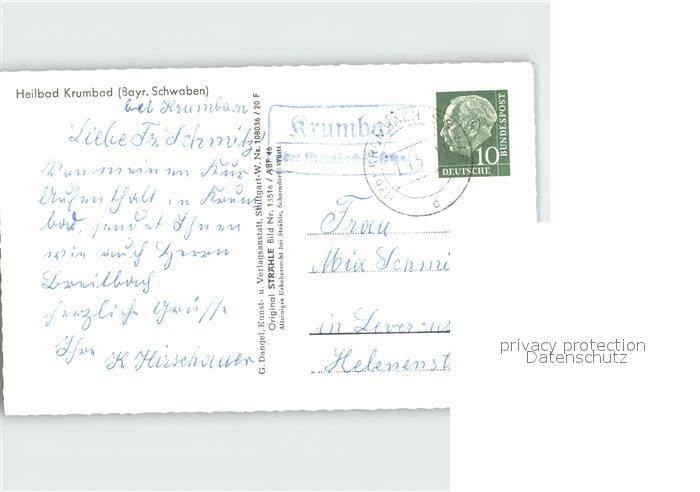 Heilbad Krumbad (Bayr. Schwaben)
bei Krumbach
Liebe Fr. Schmitz
Von meinem Kur
Aufenthalt in Krum
bad, sendet Ihnen
wie auch Herrn
Breitbach
herzliche Grüsse
Ihre K Hirschauer
G. Danger, Kunst- u. Verlagsanstalt, Stuttgart-W. Nr. 108036 / 20 F
Original STRÄHLE Bild Nr. 13516 / ABF 46
Alleiniges Urheberrecht bei Strähle, Schorndorf/Württ.
Krumbad
über Krumbach
KRUMBACH
DEUTSCHE
10
BUNDESPOST
Frau
Mia Schmi
in Levercus
Helenenst
privacy protection
Datenschutz